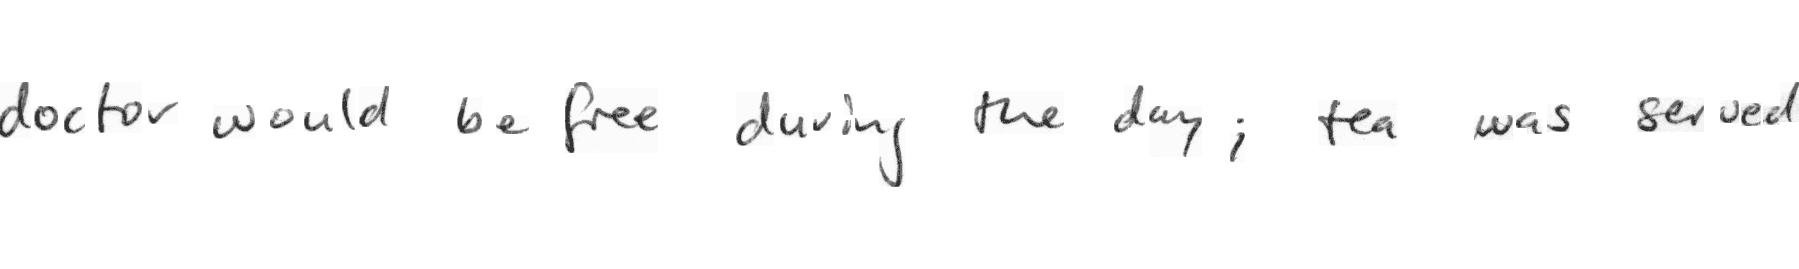 doctor would be free during the day; tea was served